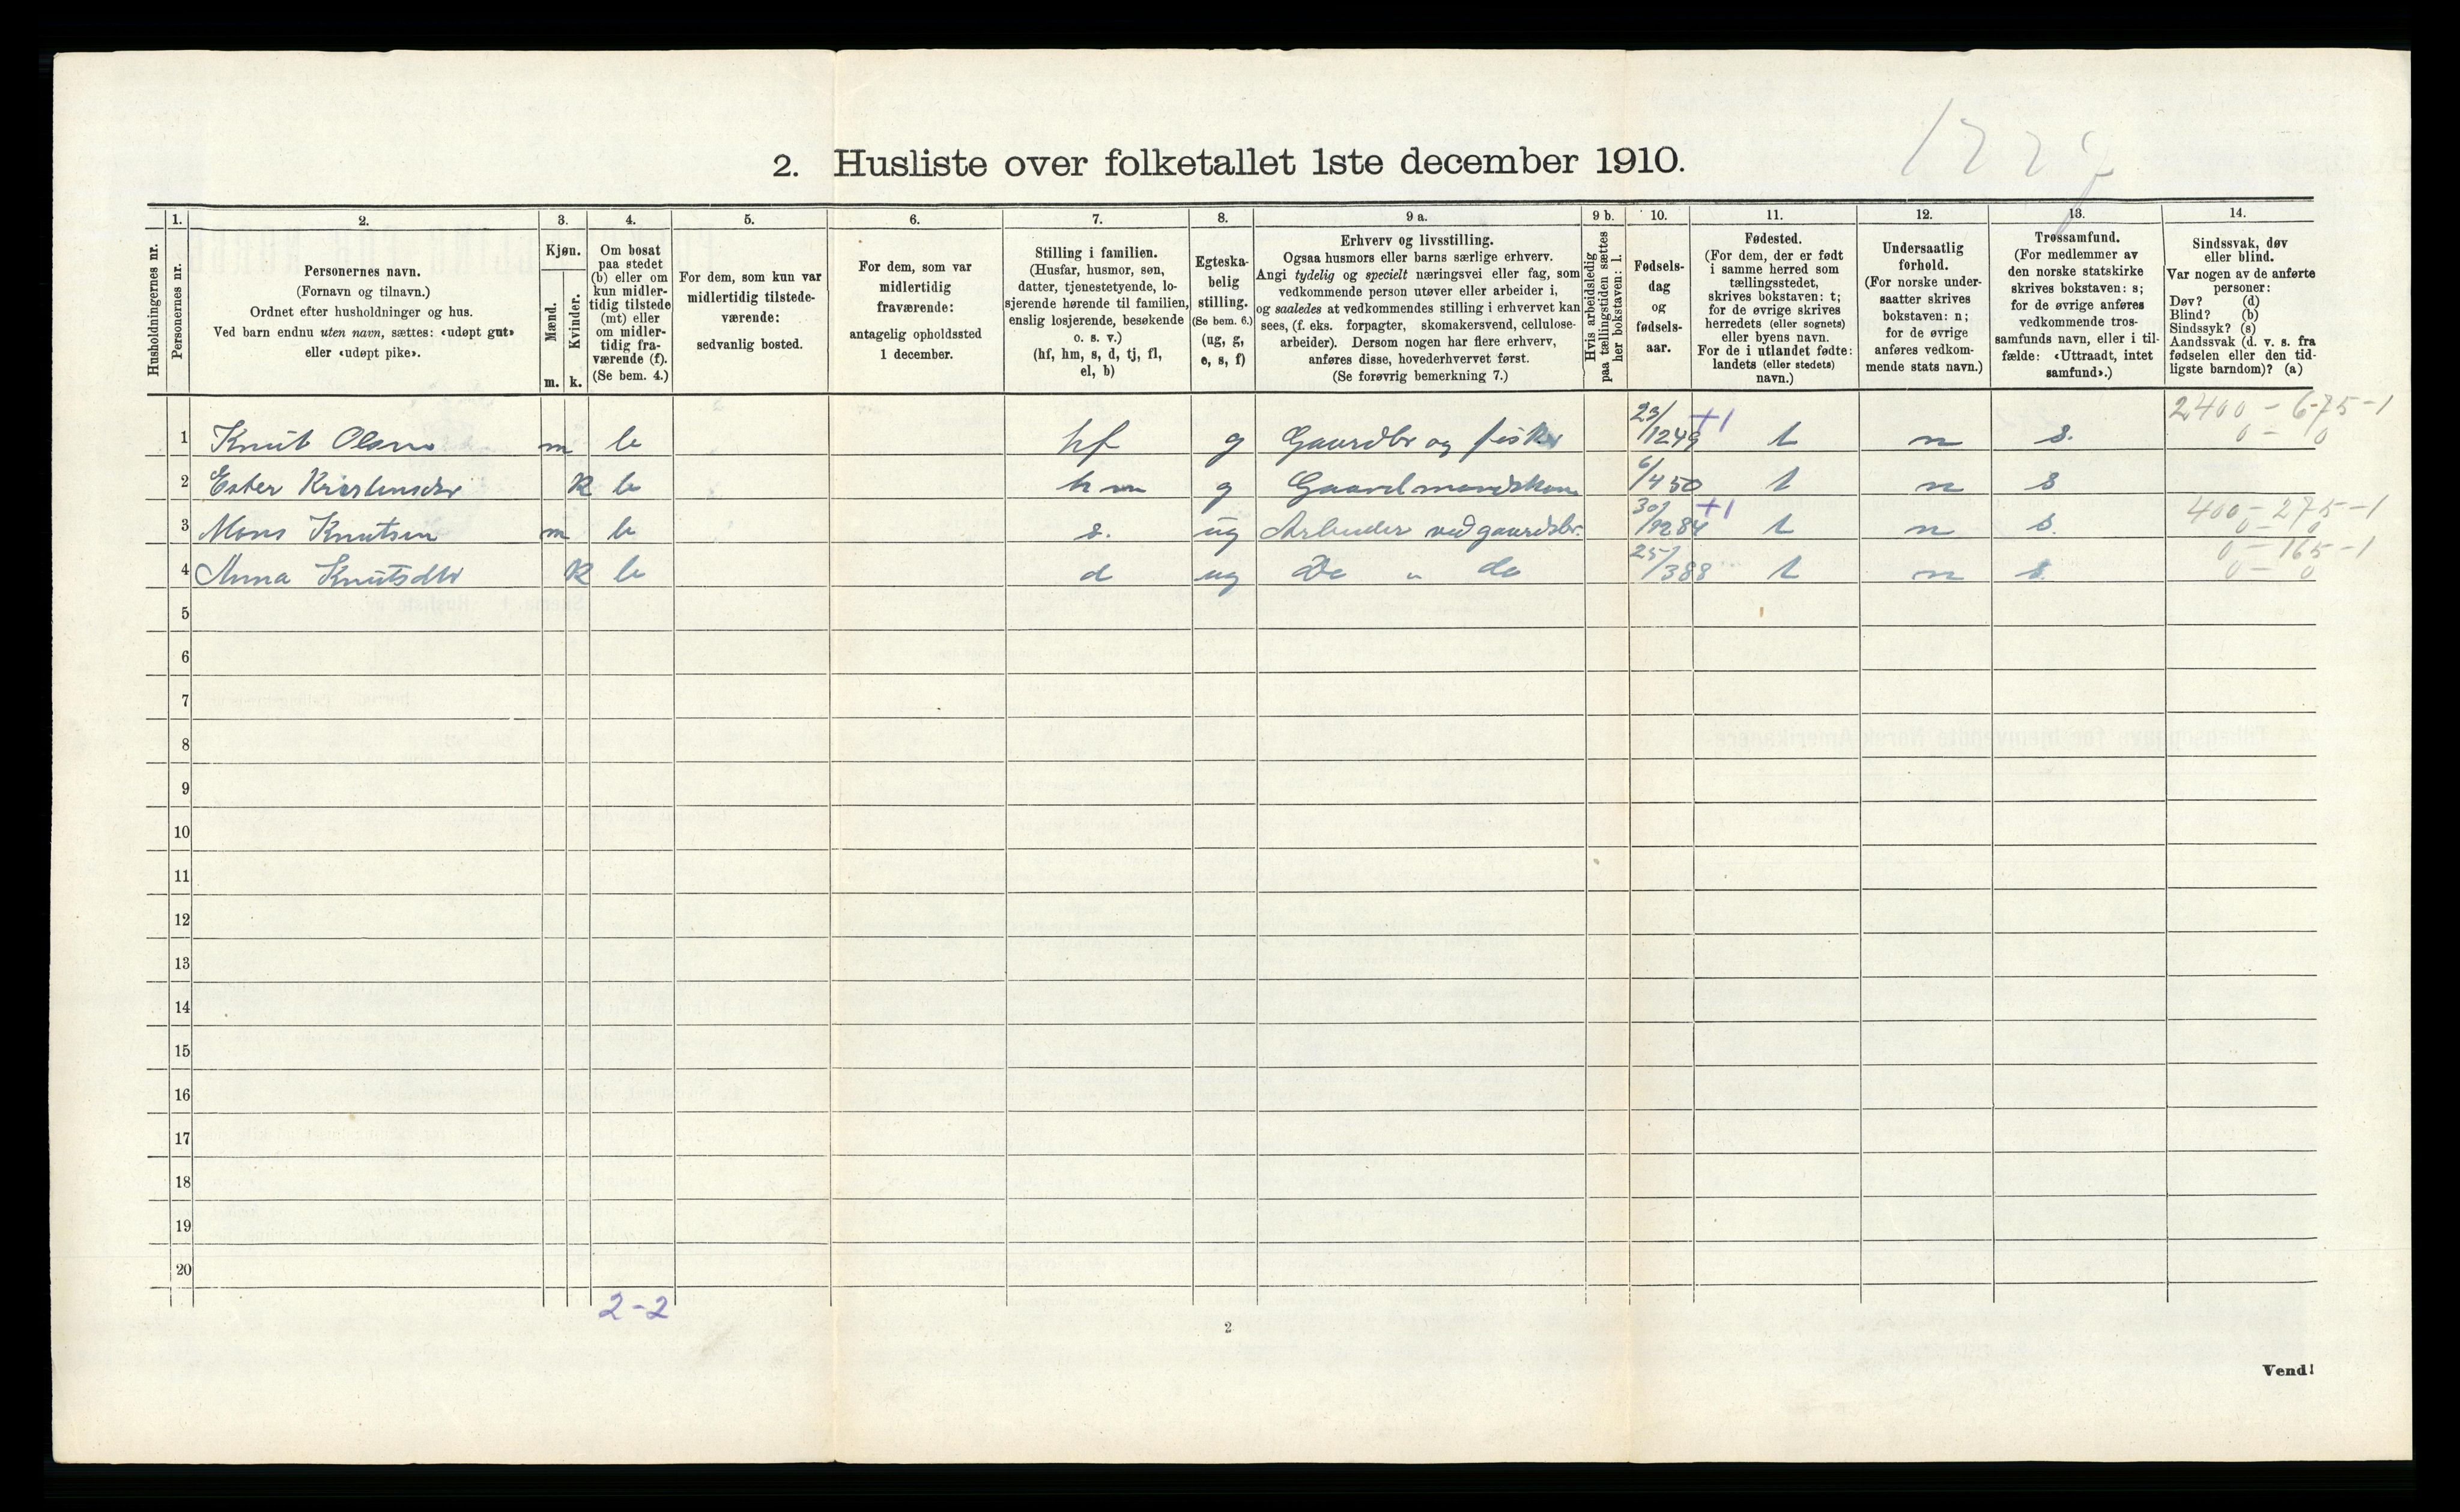 2. Husliste over folketallet 1ste december 1910.
Husholdningernes nr.
1.
Personernes nr.
2.
Personernes navn.
(Fornavn og tilnavn.)
Ordnet efter husholdninger og hus.
Ved barn endnu uten navn, sættes: «udøpt gut»
eller «udøpt pike».
3.
Kjøn.
Mænd.
m.
Kvinder.
k.
4.
Om bosat
paa stedet
(b) eller om
kun midler-
tidig tilstede
(mt) eller
om midler-
tidig fra-
værende (f).
(Se bem. 4.)
5.
For dem, som kun var
midlertidig tilstede-
værende:
sedvanlig bosted.
6.
For dem, som var
midlertidig
fraværende:
antagelig opholdssted
1 december.
7.
Stilling i familien.
(Husfar, husmor, søn,
datter, tjenestetyende, lo-
sjerende hørende til familien,
enslig losjerende, besøkende
o. s. v.)
(hf, hm, s, d, tj, fl,
el, b)
8.
Egteska-
belig
stilling.
(Se bem. 6.)
(ug, g,
e, s, f)
9 a.
Erhverv og livsstilling.
Ogsaa husmors eller barns særlige erhverv.
Angi tydelig og specielt næringsvei eller fag, som
vedkommende person utøver eller arbeider i,
og saaledes at vedkommendes stilling i erhvervet kan
sees, (f. eks. forpagter, skomakersvend, cellulose-
arbeider). Dersom nogen har flere erhverv,
anføres disse, hovederhvervet først.
(Se forøvrig bemerkning 7.)
9 b.
Hvis arbeidsledig
paa tællingstiden sættes
her bokstaven: l.
10.
Fødsels-
dag
og
fødsels-
aar.
11.
Fødested.
(For dem, der er født
i samme herred som
tællingsstedet,
skrives bokstaven: t;
for de øvrige skrives
herredets (eller sognets)
eller byens navn.
For de i utlandet fødte:
landets (eller stedets)
navn.)
12.
Undersaatlig
forhold.
(For norske under-
saatter skrives
bokstaven: n;
for de øvrige
anføres vedkom-
mende stats navn.)
13.
Trossamfund.
(For medlemmer av
den norske statskirke
skrives bokstaven: s;
for de øvrige anføres
vedkommende tros-
samfunds navn, eller i til-
fælde: «Uttraadt, intet
samfund».)
14.
Sindssvak, døv
eller blind.
Var nogen av de anførte
personer:
Døv? (d)
Blind? (b)
Sindssyk? (s)
Aandssvak (d. v. s. fra
fødselen eller den tid-
ligste barndom)? (a)
1 Knut Olsen m b hf g Gaardbr og fisker 23/12 49 +1 t n s. 2400 - 675-1
0 - 0
2 Ester Kristensdtr k b hm g Gaardmandskone 6/4 50 t n s
3 Mons Knutsen m b s. ug Arbeider ved gaardsbr. 30/12 84 +1 t n s. 400 - 275-1
0 - 0
4 Anna Knutsdtr k b d ug Do " do 25/3 88 t n s. 0 - 165-1
0 - 0
5
6
7
8
9
10
11
12
13
14
15
16
17
18
19
20
2-2
2
Vend!